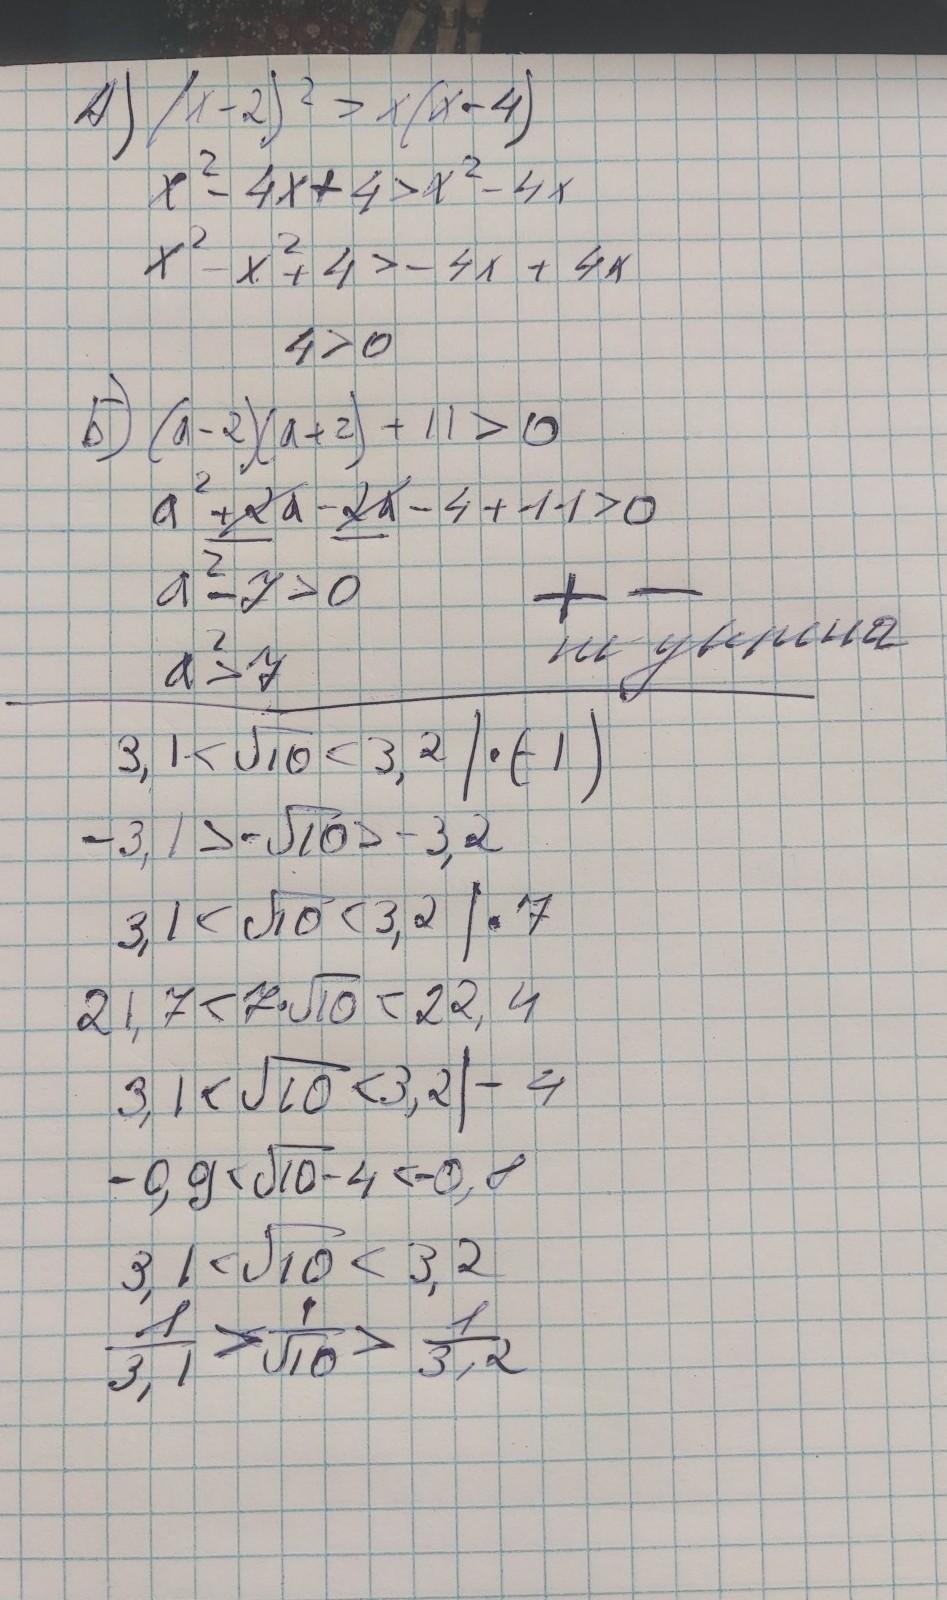 А) (x-2)² > x(x-4)
x²-4x+4>x²-4x
x²-x²+4>-4x+4x
4>0
Б) (a-2)(a+2)+11>0
a²+2a-2a-4+11>0
a²-7>0
+ -
a²>7
3,1<√10<3,2 |·(-1)
-3,1>-√10>-3,2
3,1<√10<3,2 |·7
21,7<7·√10<22,4
3,1<√10<3,2 |-4
-0,9<√10-4<-0,8
3,1<√10<3,2
1/3,1 > 1/√10 > 1/3,2